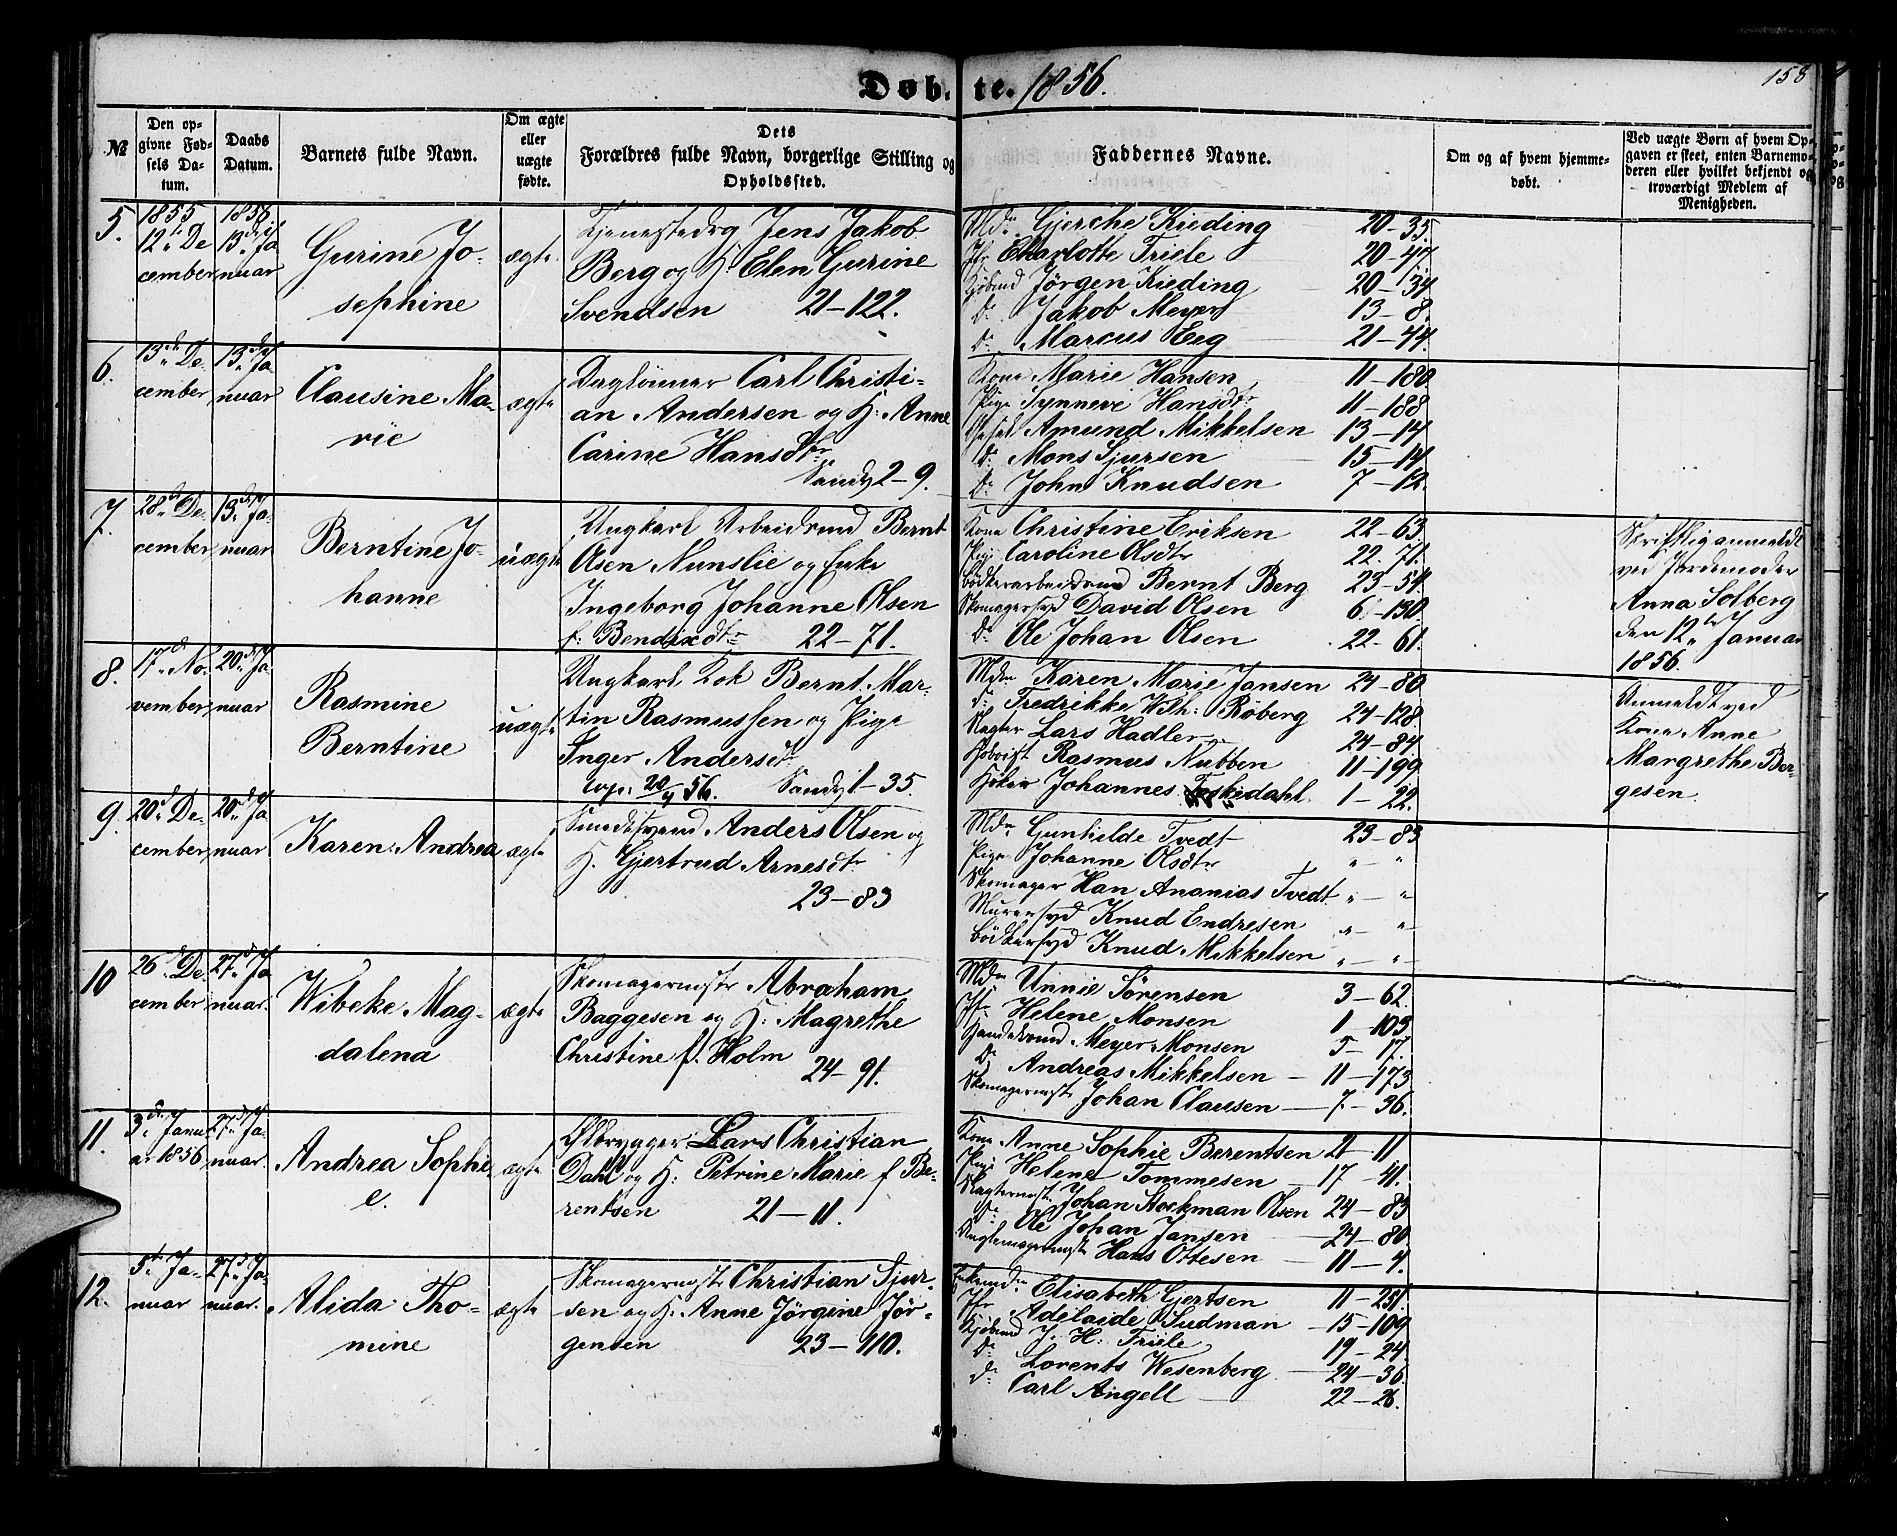 Døb. te. 1856.
158
№
Den opgivne Fødsels Datum.
Daabs Datum.
Barnets fulde Navn.
Om ægte eller uægte fødte.
Dets Forældres fulde Navn, borgerlige Stilling og Opholdssted.
Faddernes Navne.
Om og af hvem hjemmedøbt.
Ved uægte Børn af hvem Opgaven er skeet, enten Barnemoderen eller hvilket bekjendt og troværdigt Medlem af Menigheden.
5.
1855 12te December
1856. 13de Januar
Gurine Josephine
ægte
Jens Jakob
Berg og H: Elen Gurine
Svendsen 21-122.
Mdm Gjerche Kieding 20-35.
Jfr Charlotte Friele 20-47
Kjøbmd Jörgen Kieding 20-134
do Jakob Meyer 13-8.
do Marcus Eeg 21-44.
6.
13de December
13de Januar
Clausine Marie
ægte
Daglönner Carl Christi-
an Andersen og H: Anne
Carine Hansdtr
Sandv 2-9.
Kone Marie Hansen 11-180
Pige Synneve Hansdtr 11-188
Amund Mikkelsen 13-14
do Mons Sjursen 15-14
do John Knudsen 7-12.
7.
28de December
13de Januar
Berntine Johanne
uægte
Ungkarl Arbeidsmd Bernt
Olsen Nunslie og Enke
Ingeborg Johanne Olsen
f: Bendixdtr 22-71.
Kone Christine Eriksen 22-63.
Pige Caroline Olsdtr 22.71.
Bödkerarbeidsmd Bernt Berg 23-54.
Skomagersvd David Olsen 6-130.
do Ole Johan Olsen 22-61.
Skriftlig anmeldt
ved Jordemoder
Anna Solberg
den 12te Januar
1856.
8.
17de November
20de Januar
Rasmine Berntine
uægte
Ungkarl Kok Bernt Mar-
tin Rasmussen og Pige
Inger Andersdtr
Sandv 1-35.
Mdm Karen Marie Jansen 24-80
do Fredrikke Wilh: Röberg 24-128.
Slagter Lars Hadler 24-84
Rasmus Nubben 11-199
Høker Johannes Toskedahl. 1-22.
Anmeldt ved
Kone Anne
Margrethe Ber-
gesen.
9.
20de December
20de Januar
Karen Andrea
ægte
Smedsvend Anders Olsen og
H. Gjertrud Arnesdtr
23-83
Mdm Gunhilde Tvedt 23-83
Pige Johanne Olsdtr " - "
Skomager Han Ananias Tvedt " - "
Murersvd Knud Endresen " - "
Bödkersvd Knud Mikkelsen " - "
10
26de December
27de Januar.
Wibeke Magdalena
ægte
Skomagermstr Abraham
Baggesen og H: Magrethe
Christine f. Holm
24-91.
Mdm Unnie Sörensen 3-62.
Jfr Helene Monsen 1-103
Handelsmd Meyer Monsen 5-17.
do Andreas Mikkelsen - 11-173
Skomagermstr Johan Clausen - 7-36.
11.
3de Januar 1856
27de Januar.
Andrea Sophie.
ægte
Ølbrygger Lars Christian
Dahl og H: Petrine Marie f Be-
rentsen 21-11.
Kone Anne Sophie Berentsen 21-11
Pige Helene Tommesen - 17-41.
Slagtermstr Johan Stockman Olsen 24-83
do Ole Johan Jansen - 24-80
Hans Ottesen - 11-4.
12.
5te Januar
27de Januar.
Alida Thomine
ægte
Skomagermstr Christian Sjur-
sen og H: Anne Jörgine Jör-
gensen 23-110.
Enkemdm Elisabeth Gjertsen 11-251.
Jfr Adelaide Sudman - 15-109
Kjøbmd J. H: Friele 19-24.
do Lorents Wesenberg - 24-36
do Carl Angell 22-26.